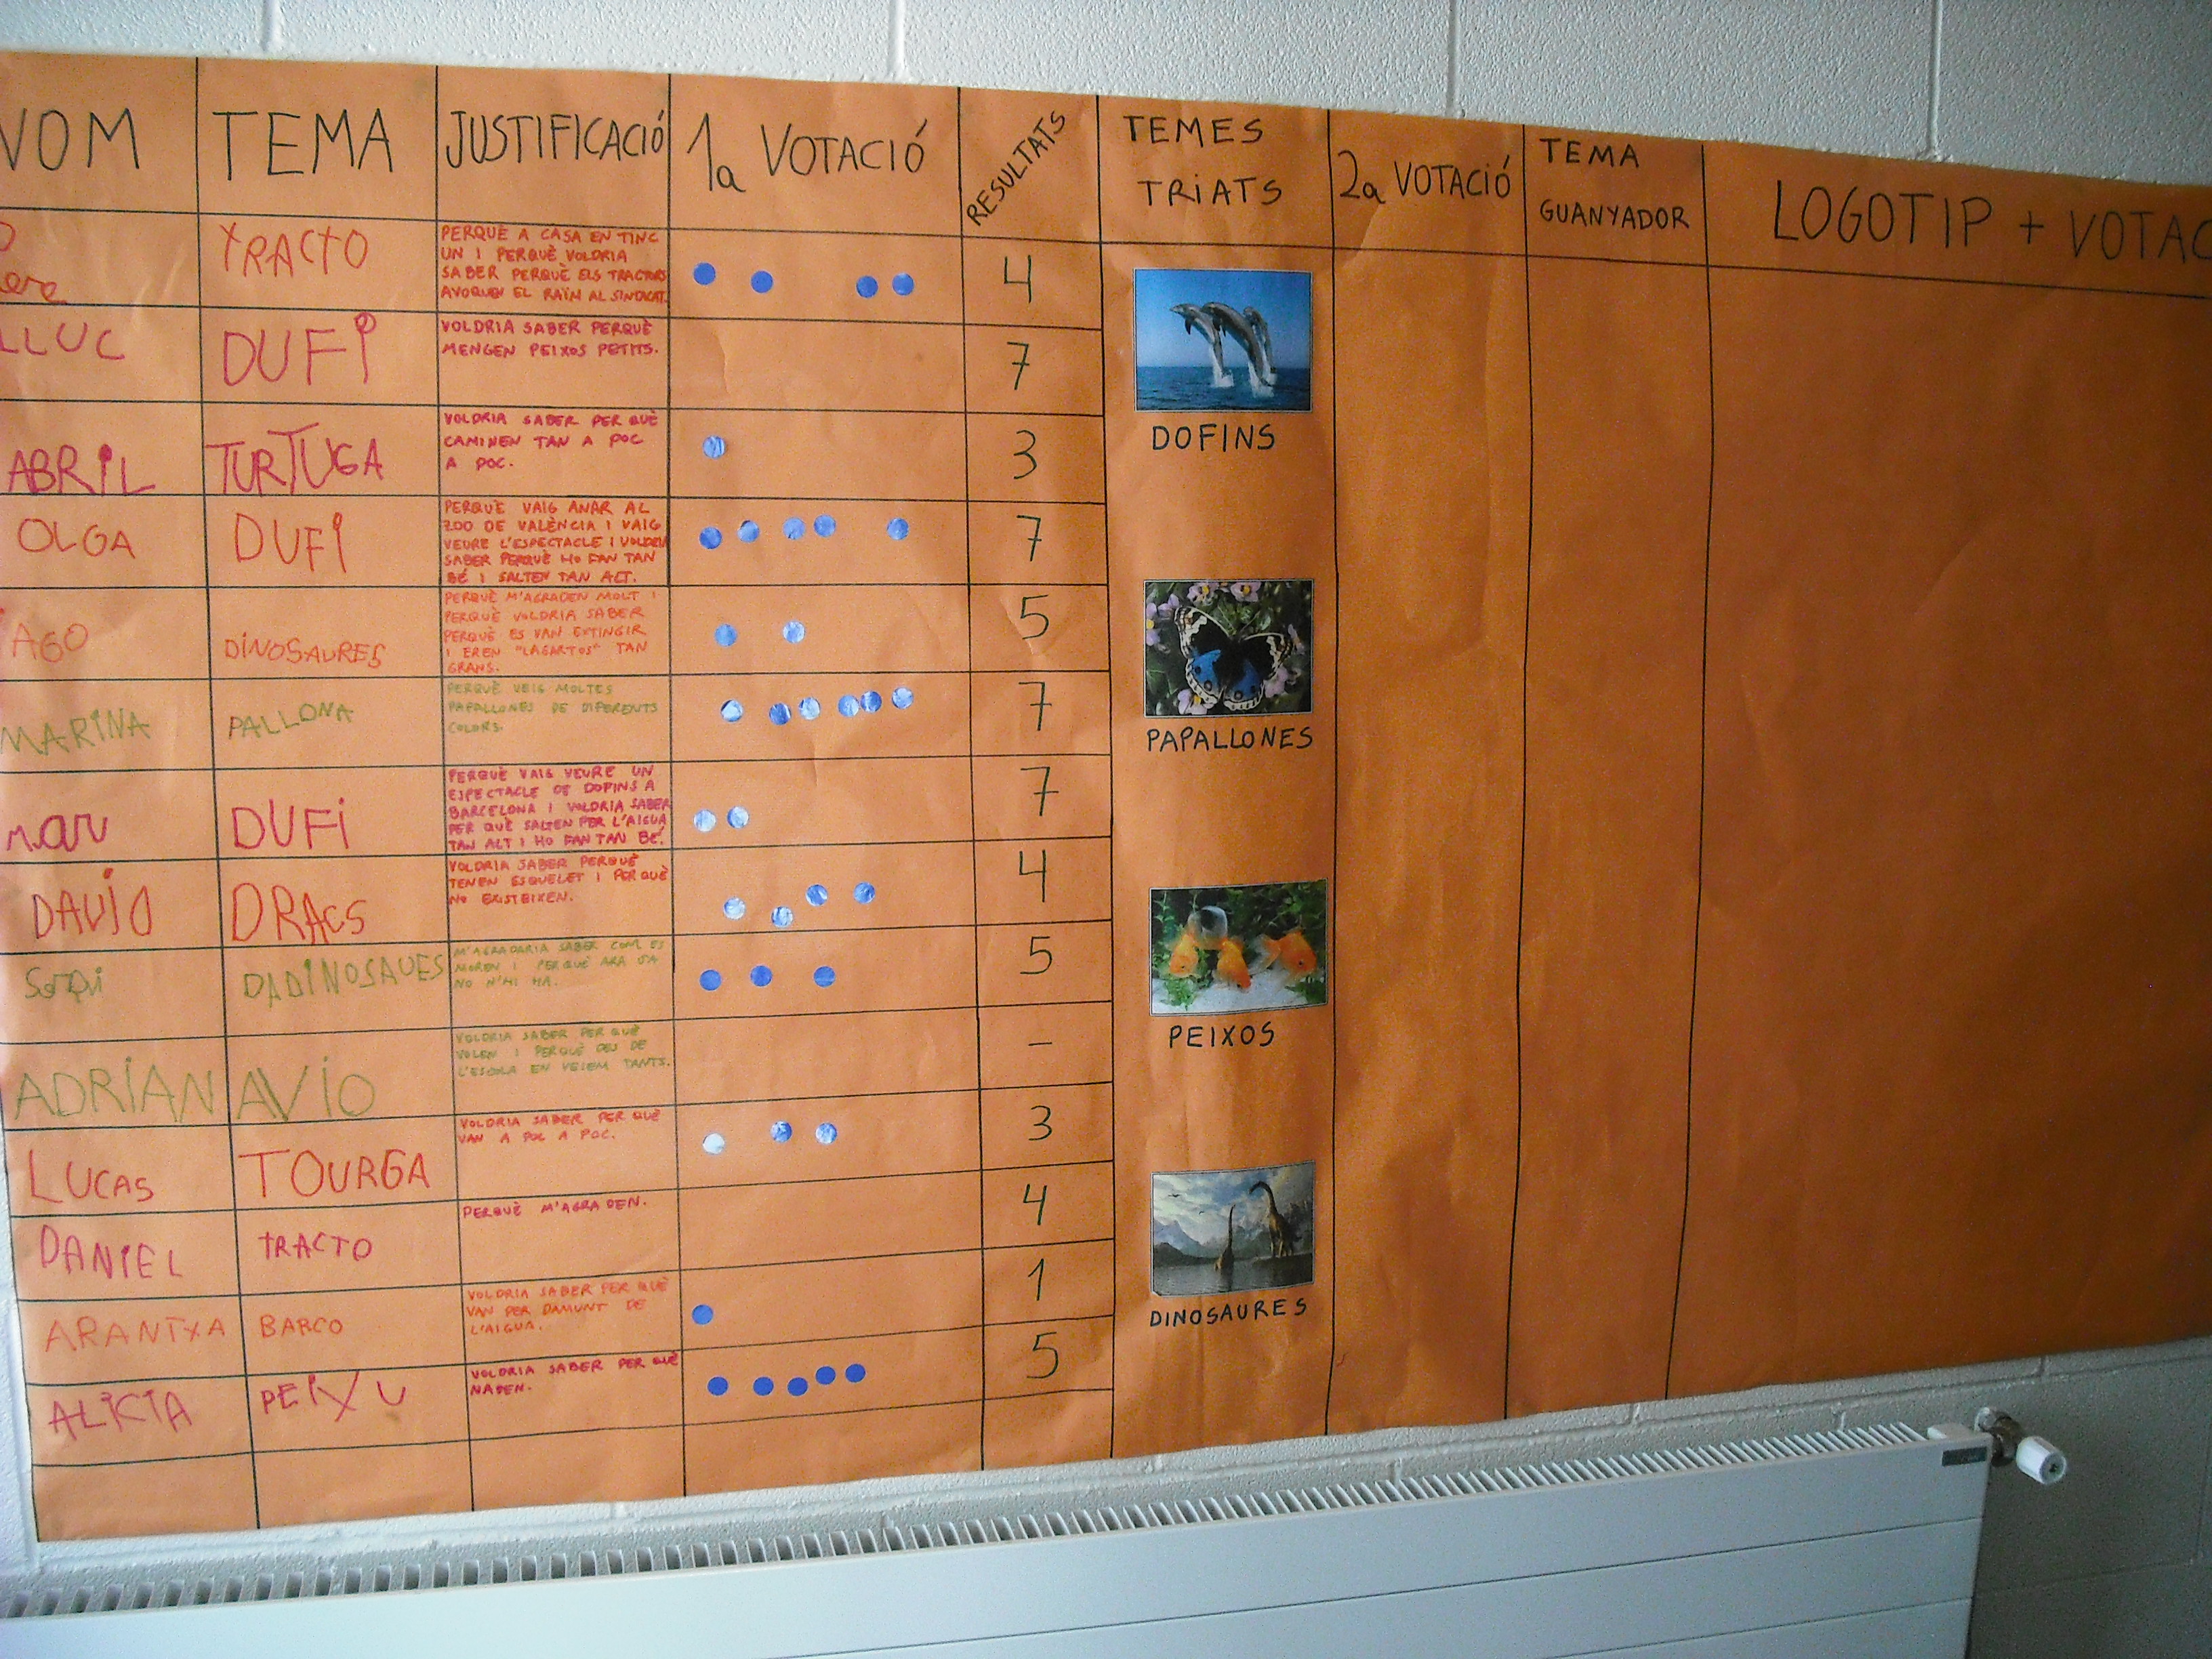 NOM TEMA JUSTIFICACIÓ 1a VOTACIÓ RESULTATS TEMES TRIATS 2a VOTACIÓ TEMA GUANYADOR LOGOTIP + VOTAC
TRACTO
PERQUÈ A CASA EN TINC
UN I PERQUÈ VOLDRIA
SABER PERQUÈ ELS TRACTORS
AVOQUEN EL RAÏM AL SINDICAT.
4
LLUC DUFI
VOLDRIA SABER PERQUÈ
MENGEN PEIXOS PETITS.
7
ABRIL TURTUGA
VOLDRIA SABER PER QUÈ
CAMINEN TAN A POC
A POC.
3
OLGA DUFI
PERQUÈ VAIG ANAR AL
ZOO DE VALÈNCIA I VAIG
VEURE L'ESPECTACLE I VOLDRIA
SABER PERQUÈ HO FAN TAN
BÉ I SALTEN TAN ALT.
7
IAGO DINOSAURES
PERQUÈ M'AGRADEN MOLT I
PERQUÈ VOLDRIA SABER
PERQUÈ ES VAN EXTINGIR
I EREN "LAGARTOS" TAN
GRANS.
5
MARINA PALLONA
PERQUÈ VEIG MOLTES
PAPALLONES DE DIFERENTS
COLORS.
7
mar DUFI
PERQUÈ VAIG VEURE UN
ESPECTACLE DE DOFINS A
BARCELONA I VOLDRIA SABER
PER QUÈ SALTEN PER L'AIGUA
TAN ALT I HO FAN TAN BÉ.
7
DAVID DRACS
VOLDRIA SABER PERQUÈ
TENEN ESQUELET I PER QUÈ
NO EXISTEIXEN.
4
DADINOSAUES
M'AGRADARIA SABER COM ES
MOREN I PERQUÈ ARA JA
NO N'HI HA.
5
ADRIAN AVIO
VOLDRIA SABER PER QUÈ
VOLEN I PERQUÈ DES DE
L'ESCOLA EN VEIEM TANTS.
–
LUCAS TOURGA
VOLDRIA SABER PER QUÈ
VAN A POC A POC.
3
DANIEL TRACTO
PERQUÈ M'AGRADEN.
4
ARANTXA BARCO
VOLDRIA SABER PER QUÈ
VAN PER DAMUNT DE
L'AIGUA.
1
ALICIA PEIXU
VOLDRIA SABER PER QUÈ
NADEN.
5
DOFINS
PAPALLONES
PEIXOS
DINOSAURES